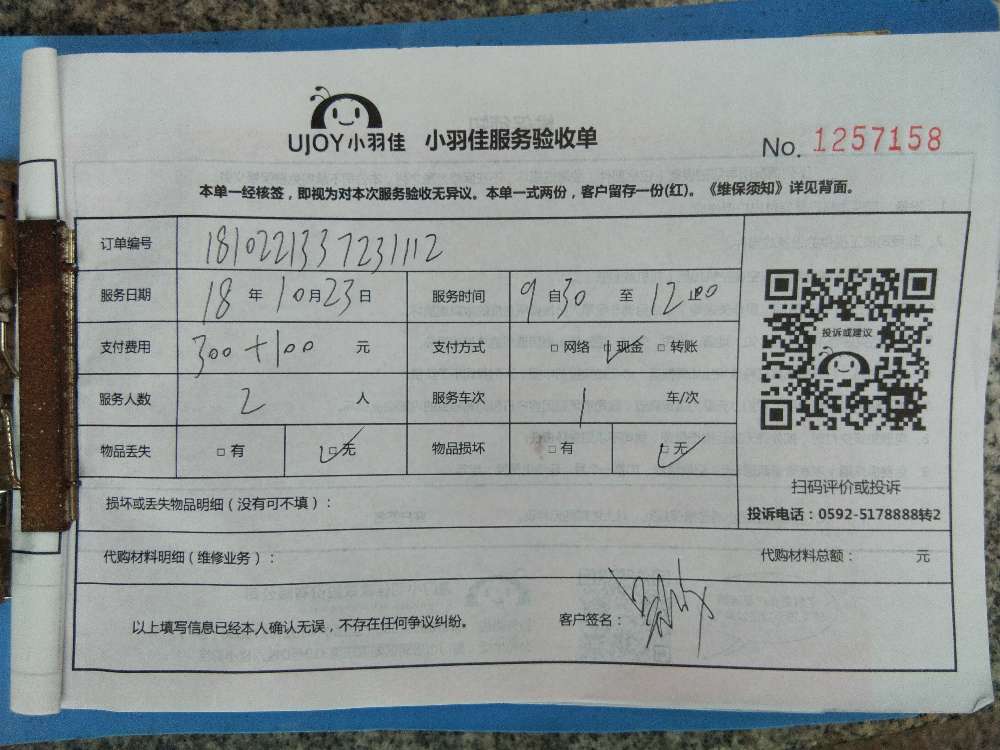 UJOY小羽佳 小羽佳服务验收单
No. 1257158
本单一经核签，即视为对本次服务验收无异议。本单一式两份，客户留存一份(红)。《维保须知》详见背面。
订单编号 1810221337231112
服务日期 18 年 10 月 23 日 服务时间 9 自 30 至 12 止00
支付费用 300+100 元 支付方式 □ 网络 □ 现金 □ 转账
服务人数 2 人 服务车次 1 车/次
物品丢失 □ 有 □ 无 物品损坏 □ 有 □ 无
投诉或建议
扫码评价或投诉
投诉电话：0592-5178888转2
损坏或丢失物品明细（没有可不填）：
代购材料明细（维修业务）： 代购材料总额： 元
以上填写信息已经本人确认无误，不存在任何争议纠纷。 客户签名：